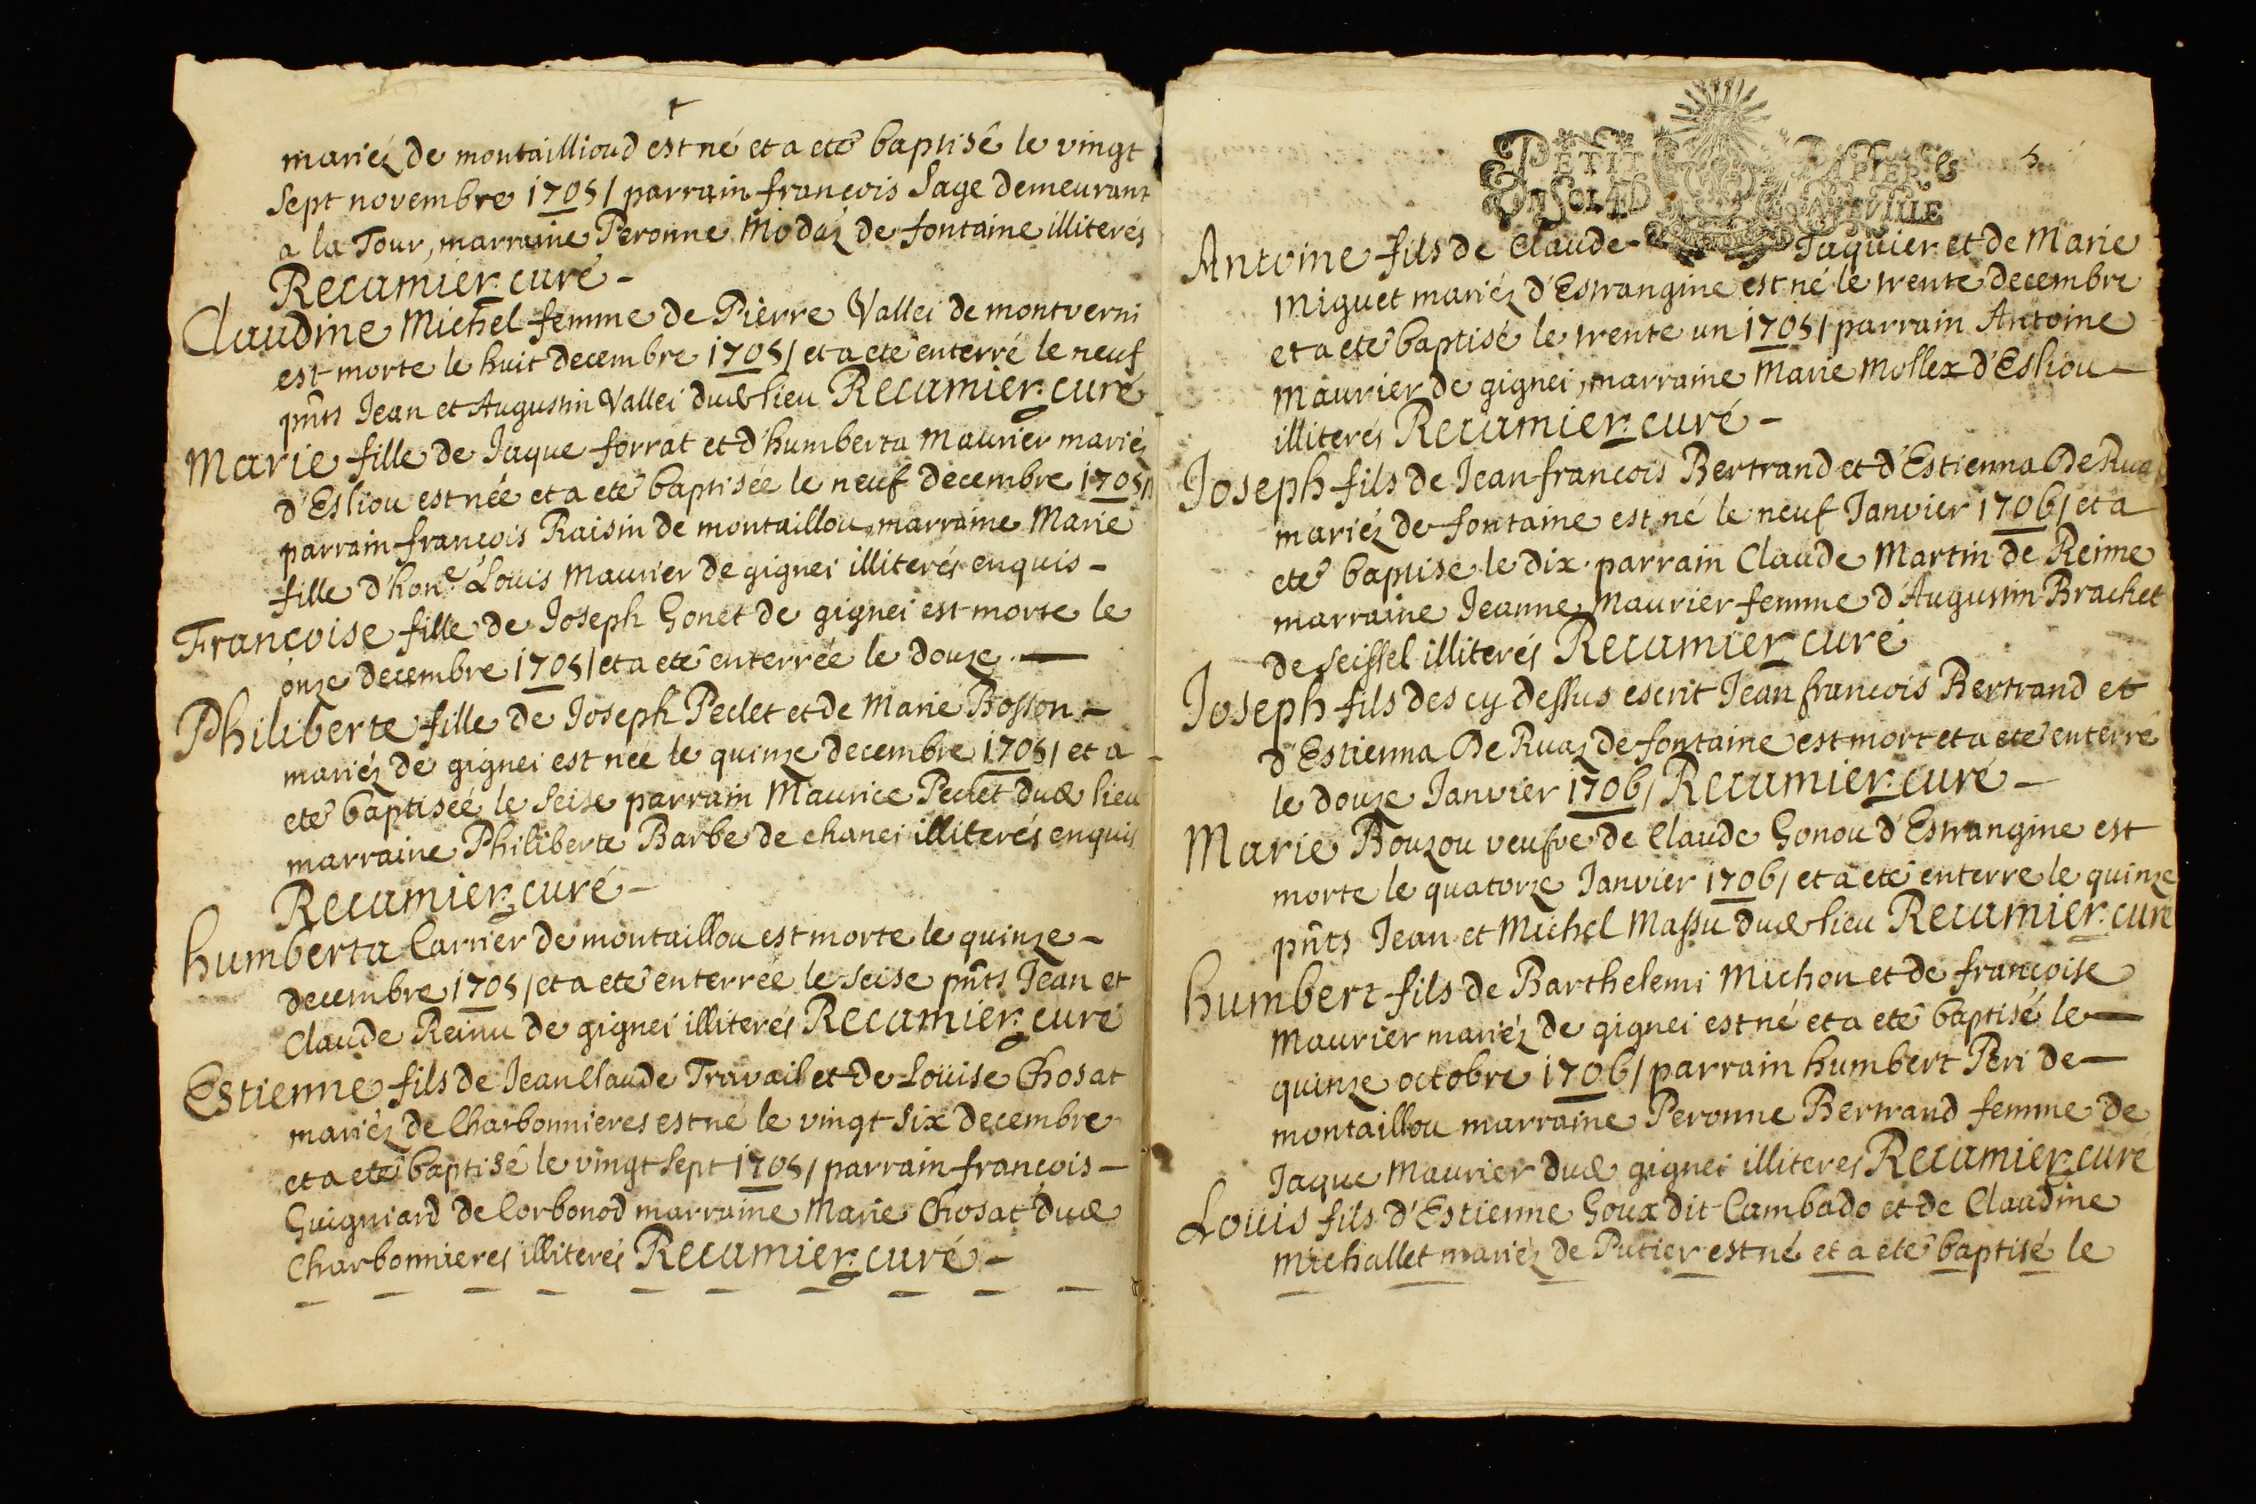 mariéz de montaillioud est né et a eté baptisé le vingt
sept novembre 1705/ parrain françois Sage demeurant
a la Tour, marraine Peronne Modaz de fontaine illiterés
Recamier curé –
Claudine Michel femme de Pierre Vallei de montverni
est morte le huit decembre 1705/ et a eté enterré le neuf
pnts Jean et Augustin Vallei dud lieu Recamier curé
Marie fille de Jaque forrat et d'humberta Maurier mariéz
d'Esliou est née et a eté baptisée le neuf decembre 1705/
parrain françois Raisin de montaillou, marraine Marie
fille d'hon.e Louis Maurier de gignei illiterés enquis –
Françoise fille de Joseph Gonet de gignei est morte le
onze decembre 1705/ et a eté enterrée le douze. —
Philiberte fille de Joseph Peclet et de Marie Bosson –
mariéz de gignei est née le quinze decembre 1705/ et a
eté baptisée le seise parrain Maurice Peclet dud lieu
marraine Philiberte Barbe de chanei illiterés enquis
Recamier curé –
humberta Carrier de montaillou est morte le quinze –
decembre 1705/ et a eté enterrée le seise pnts Jean et
Claude Reinu de gignei illiterés Recamier curé
Estienne fils de Jean Claude Travail et de Louise Chosat
mariéz de Charbonnieres est né le vingt six decembre
et a eté baptisé le vingt sept 1705/ parrain françois –
Guigniard de Corbonod marraine Marie Chosat dud
Charbonnieres illiterés Recamier curé –
PETIT PAPIER
UN SOL LA FEUILLE
Antoine fils de Claude – Jaquier et de Marie
Miguet mariéz d'Estrangine est né le trente decembre
et a eté baptisé le trente un 1705/ parrain Antoine
Maurier de gignei, marraine Marie Mollex d'Esliou —
illiterés Recamier curé –
Joseph fils de Jean françois Bertrand et d'Estienna De Ruaz
mariéz de fontaine est né le neuf Janvier 1706/ et a
eté baptise le dix. parrain Claude Martin de Reime
marraine Jeanne Maurier femme d'Augustin Brachet
de Seissel illiterés Recamier curé
Joseph fils des cy dessus escrit Jean françois Bertrand et
d'Estienna De Ruaz de fontaine est mort et a eté enterré
le douze Janvier 1706/ Recamier curé –
Marie Bouzou veufve de Claude Gonou d'Estrangine est
morte le quatorze Janvier 1706/ et a eté enterre le quinze
pnts Jean et Michel Massu dud lieu Recamier curé
humbert fils de Barthelemi Michon et de françoise
Maurier mariéz de gignei est né et a eté baptisé le —
quinze octobre 1706/ parrain humbert Peri de —
montaillou marraine Peronne Bertrand femme de
Jaque Maurier dud gignei illiteres Recamier curé
Louis fils d'Estienne Goux dit Cambado et de Claudine
Michallet mariéz de Putier est né et a eté baptisé le